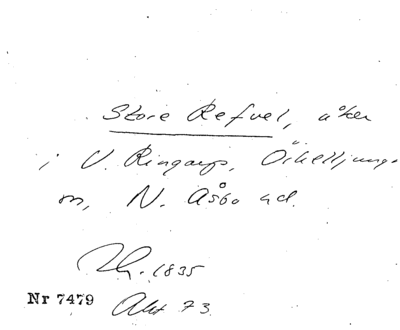 Store Refvel, åker
i V. Ringarp, Örkelljunga
sn, N. Åsbo hd.
Lh. 1835
Nr 7479 Akt 73